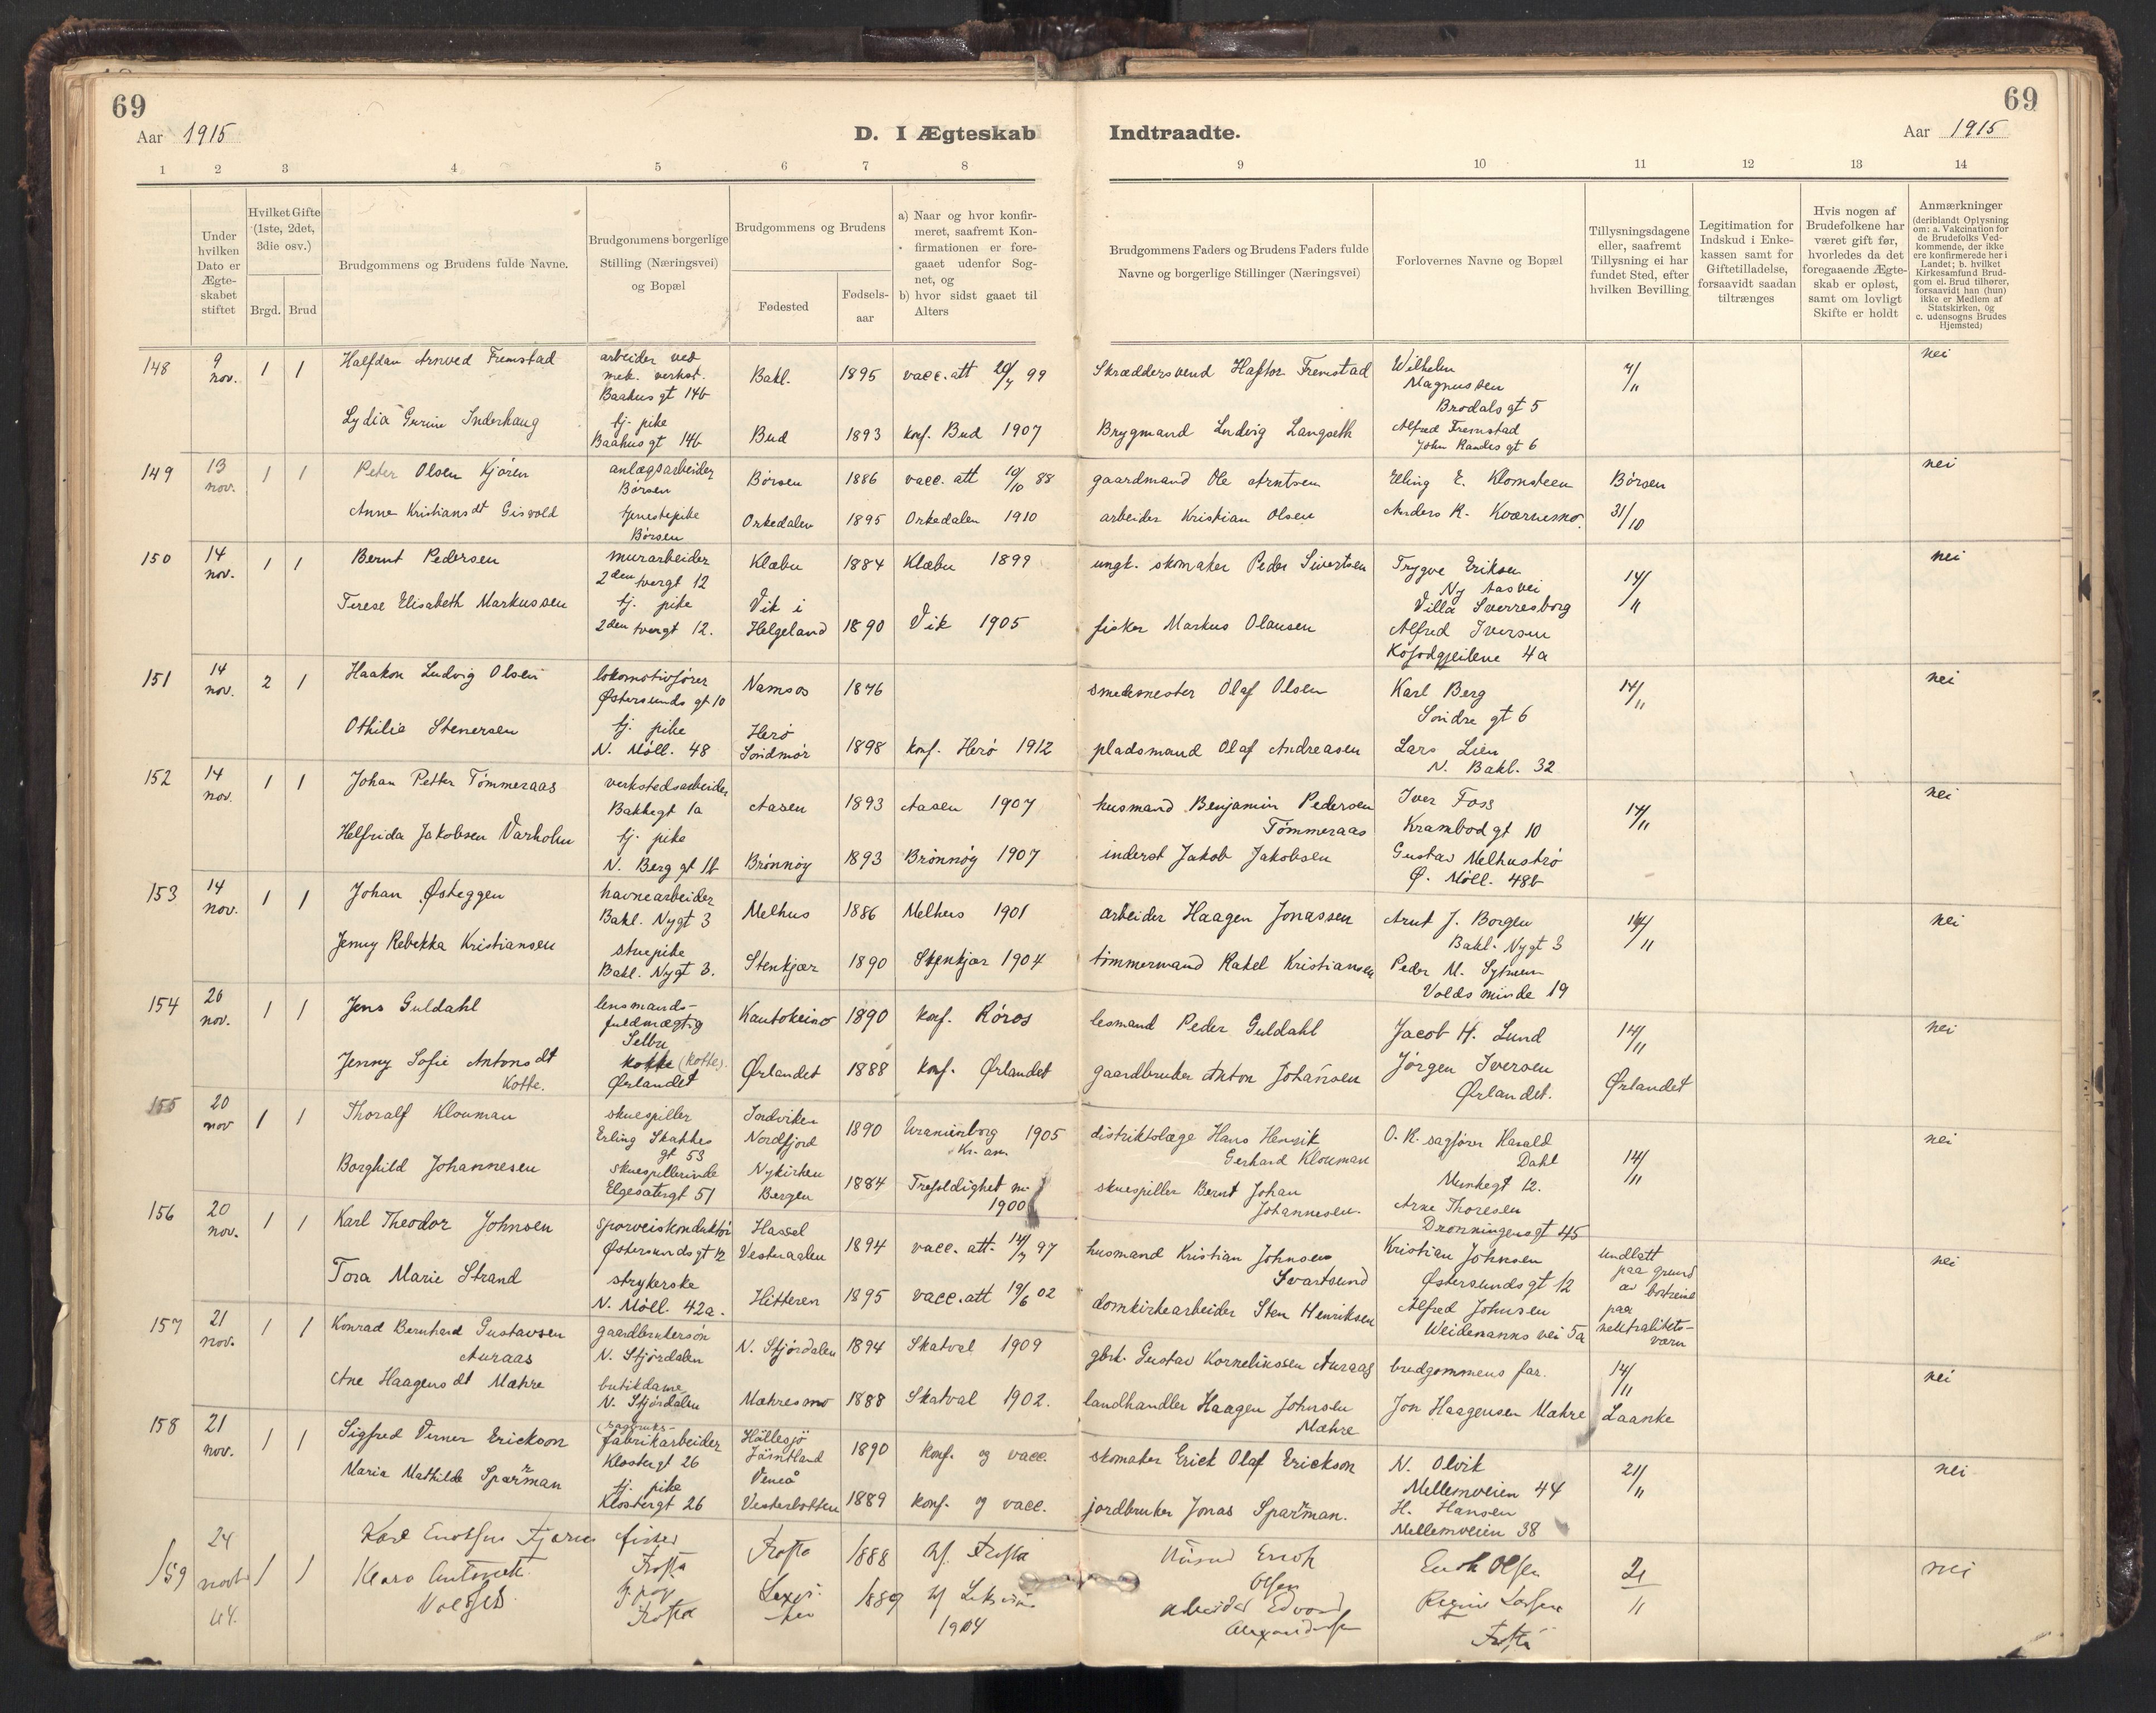 69
69
Aar 1915
D. I Ægteskab Indtraadte.
Aar 1915
1 2 3 4 5 6 7 8 9 10 11 12 13 14
Under hvilken Dato er Ægte-skabet stiftet
Hvilket Gifte (1ste, 2det, 3die osv.)
Brgd. Brud
Brudgommens og Brudens fulde Navne.
Brudgommens borgerlige Stilling (Næringsvei) og Bopæl
Brudgommens og Brudens
Fødested
Fødsels-aar
a) Naar og hvor konfir-meret, saafremt Kon-firmationen er fore-gaaet udenfor Sog-net, og
b) hvor sidst gaaet til Alters
Brudgommens Faders og Brudens Faders fulde Navne og borgerlige Stillinger (Næringsvei)
Forlovernes Navne og Bopæl
Tillysningsdagene eller, saafremt Tillysning ei har fundet Sted, efter hvilken Bevilling
Legitimation for Indskud i Enke-kassen samt for Giftetilladelse, forsaavidt saadan tiltrænges
Hvis nogen af Brudefolkene har været gift før, hvorledes da det foregaaende Ægte-skab er opløst, samt om lovligt Skifte er holdt
Anmærkninger (deriblandt Oplysning om: a. Vakcination for de Brudefolks Ved-kommende, der ikke ere konfirmerede her i Landet; b. hvilket Kirkesamfund Brud-gom el. Brud tilhører, forsaavidt han (hun) ikke er Medlem af Statskirken, og c. udensogns Brudes Hjemsted)
148 9 nov. 1 1 Halfdan Arnved Fremstad arbeider ved mek. verkst. Baahus gt 14b Bakl. 1895 vacc. att 99 Skræddersvend Haftor Fremstad Wilhelm Magnussen Brodals gt 5 7/11 nei
Lydia Gurine Inderhaug tj. pike Baahus gt 14b Bud 1893 konf. Bud 1907 Brygmand Ludvig Langseth Alfred Fremstad John Randes gt 6
149 13 nov. 1 1 Peter Olsen Kjøren anlægsarbeider Børsen Børsen 1886 vacc. att 19/10 88 gaardmand Ole Arntsen Elling E. Klomsteen Børsen nei
Anne Kristiansdt Gisvold tjenestepike Børsen Orkedalen 1895 Orkedalen 1910 arbeider Kristian Olsen Anders R. Kværnmo. 31/10
150 14 nov. 1 1 Bernt Pedersen murarbeider 2den tvergt 12 Klæbu 1884 Klæbu 1899 ungk. skomaker Peder Sivertsen Trygve Eriksen Ny Aasvei Villa Sverresborg 14/11 nei
Terese Elisabeth Markussen tj. pike 2den tvergt 12. Vik i Helgeland 1890 Vik 1905 fisker Markus Olausen Alfred Iversen Kofodgjeilene 4a
151 14 nov. 2 1 Haakon Ludvig Olsen lokomotivfører Østersunds gt 10 Namsos 1876 smedmester Olaf Olsen Karl Berg Søndre gt 6 14/11 nei
Othilie Stenersen tj. pike N. Møll. 48 Herø Søndmør 1898 konf. Herø 1912 pladsmand Olaf Andreasen Lars Lien N. Bakl. 32
152 14 nov. 1 1 Johan Petter Tømmeraas verkstedsarbeider Bakkegt 1a Aasen 1893 Aasen 1907 husmand Benjamin Pedersen Tømmeraas Iver Foss Krambodgt 10 14/11 nei
Helfrida Jakobsen Varholm tj. pike N. Berg gt 1b Brønnøy 1893 Brønnøy 1907 inderst Jakob Jakobsen Gustav Melhustrø Ø. Møll. 48b
153 14 nov. 1 1 Johan Østeggen havnearbeider Bakl. Nygt 3 Melhus 1886 Melhus 1901 arbeider Haagen Jonassen Arnt J. Borgen Bakl. Nygt 3 14/11 nei
Jenny Rebekka Kristiansen stuepike Bakl. Nygt 3. Stenkjær 1890 Stenkjær 1904 tømmermand Rakel Kristiansen Peder M. Voldsminde 19
154 26 nov. 1 1 Jens Guldahl lensmands-fuldmægtig Selbu Kautokeino 1890 konf. Røros lesmand Peder Guldahl Jacob H. Lund 14/11 nei
Jenny Sofie Antonsdt Kotte. Kotte (Kotte). Ørlandet Ørlandet 1888 konf. Ørlandet gaardbruker Anton Johansen Jørgen Iversen Ørlandet. Ørlandet
155 20 nov 1 1 Thoralf Klouman skuespiller Erling Skakkes gt 53 Nordfjord 1890 Uranienborg Kr. an. 1905 distriktslæge Hans Henrik Gerhard Klouman O. R. sagfører Harald Dahl Munkegt 12. 14/11 nei
Borghild Johannesen skuespillerinde Elgesætergt 51 Nykirken Bergen 1884 Trefoldighet m. 1900 skuespiller Bernt Johan Johannesen. Arne Thoresen Dronningensgt 45
156 20 nov. 1 1 Karl Theodor Johnsen sporveiskonduktør Østersundsgt 12 Hassel Vesteraalen 1894 vacc. att. 97 husmand Kristian Johnsen Svartsund Kristian Johnsen Østersundsgt 12 undlatt paa grund av bortreise paa nøitralitets-værn nei
Tora Marie Strand strykerske N. Møll. 42a. Hitteren 1895 vacc. att 19/6 02 domkirkearbeider Sten Henriksen Alfred Johnsen Weidemanns vei 5a
157 21 nov. 1 1 Konrad Bernhard Gustavsen Auraas gaardbrukersøn N. Stjørdalen N. Stjørdalen 1894 Skatval 1909 gbrk. Gustav Kornelinssen Auraas brudgommens far. 14/11 nei
Ane Haagensdt Mæhre butikdame N. Stjørdalen Mæhresmo 1888 Skatval 1902. landhandler Haagen Johnsen Mæhre Jon Haagensen Mæhre Laanke
158 21 nov. 1 1 Sigfred Verner Erickson fabrikarbeider Klostergt 26 Hällesjö Jämtland 1890 konf. og vacc. skomaker Erick Olaf Erickson N. Olvik Mellemveien 44 21/11 nei
Maria Mathilde Sparman tj. pike Klostergt 26 Vesterbotten 1889 konf. og vacc. jordbruker Jonas Sparman. H. Hansen Mellemveien 38
159 24 1 1 fisker Frosta Frosta 1888 Frosta Olsen 21/11 nei
Klara Frosta 1889 1904 arbeider Edvard Frosta